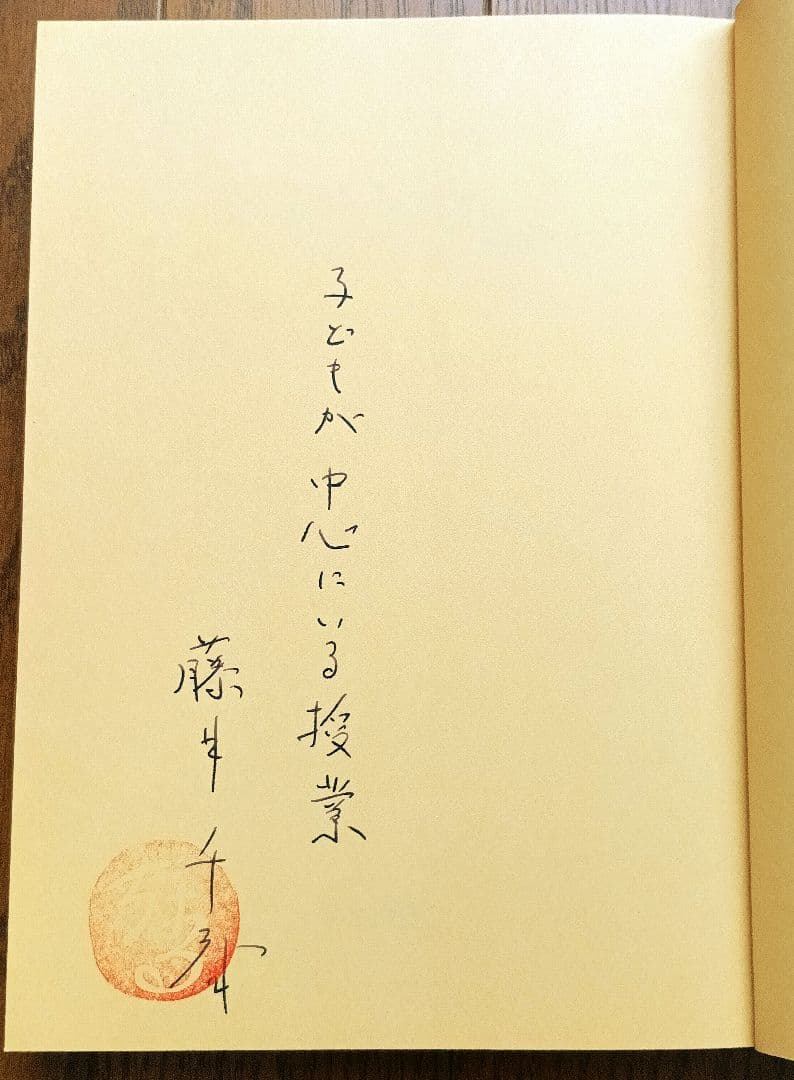 子どもが 中心にいる授業
藤井千春